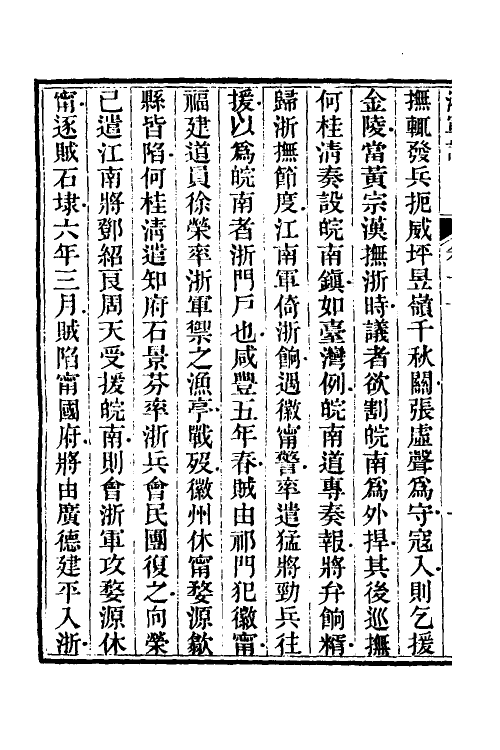 撫輒發兵扼威坪昱嶺千秋關張虛聲爲守寇入則乞援
金陵當黃宗漢撫浙時議者欲割皖南爲外捍其後巡撫
何桂清奏設皖南鎭如臺灣例皖南道專奏報將弁餉糈
歸浙撫節度江南軍倚浙餉遇徽甯警率遣猛將勁兵往
援以爲皖南者浙門戶也咸豐五年春賊由祁門犯徽甯
福建道員徐榮率浙軍禦之漁亭戰歿徽州休甯婺源歙
縣皆陷何桂清遣知府石景芬率浙兵會民團復之向榮
已遣江南將鄧紹良周天受援皖南則會浙軍攻婺源休
甯逐賊石埭六年三月賊陷甯國府將由廣德建平入浙